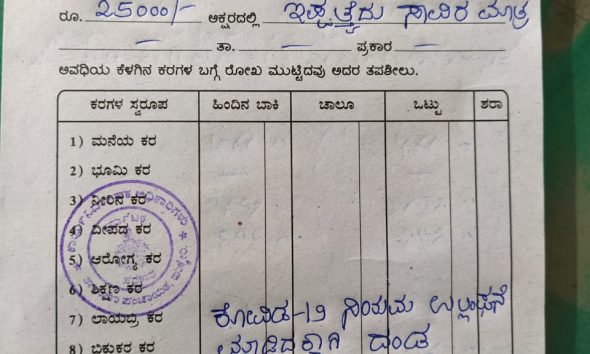 ರೂ. 25000/- ಅಕ್ಷರದಲ್ಲಿ ಇಪ್ಪತ್ತೈದು ಸಾವಿರ ಮಾತ್ರ
— ತಾ. — ಪ್ರಕಾರ —
ಅವಧಿಯ ಕೆಳಗಿನ ಕರಗಳ ಬಗ್ಗೆ ರೋಖ ಮುಟ್ಟಿದವು ಅದರ ತಪಶೀಲು.
ಕರಗಳ ಸ್ವರೂಪ ಹಿಂದಿನ ಬಾಕಿ ಚಾಲೂ ಒಟ್ಟು ಶರಾ
1) ಮನೆಯ ಕರ
2) ಭೂಮಿ ಕರ
3) ನೀರಿನ ಕರ
4) ದೀಪದ ಕರ
5) ಆರೋಗ್ಯ ಕರ
6) ಶಿಕ್ಷಣ ಕರ
7) ಲಾಯಬ್ರಿ ಕರ ಕೋವಿಡ-19 ನಿಯಮ ಉಲ್ಲಂಘನೆ
8) ಭಿಕುಕರ ಕರ ಮಾಡಿದಕ್ಕಾಗಿ ದಂಡ